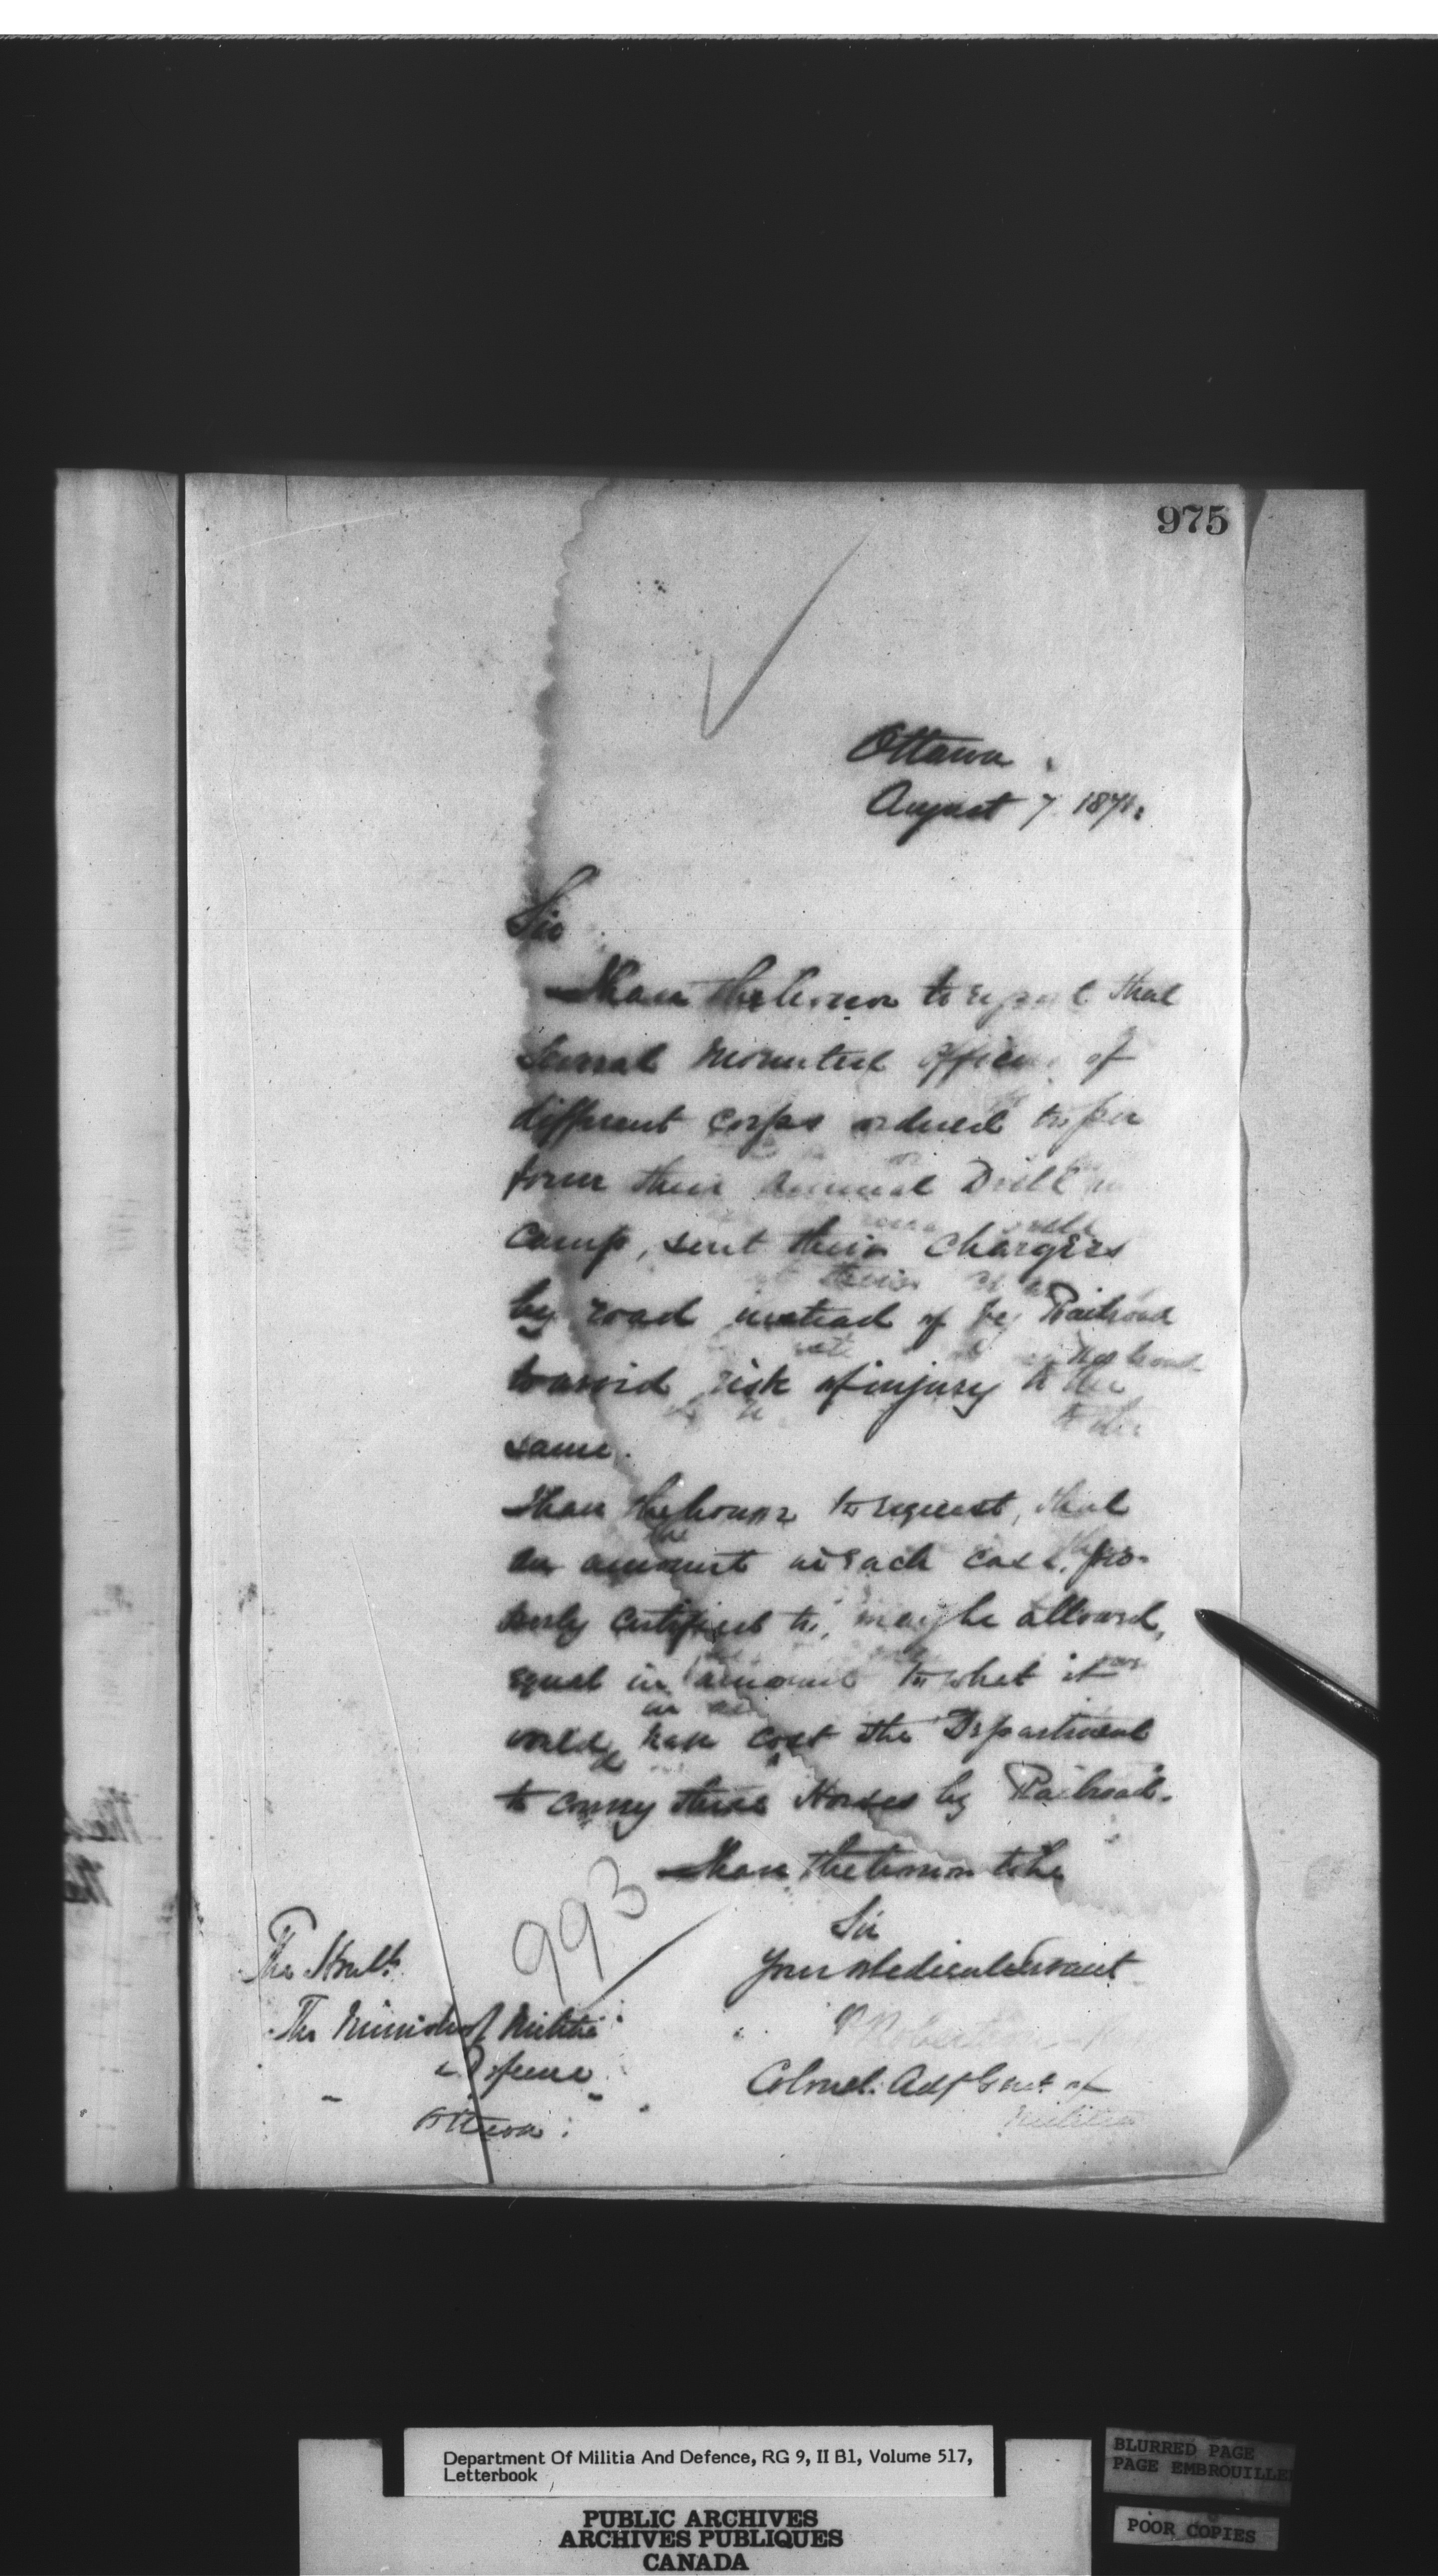 975
Ottawa
August 7. 1871.
Sir
I have the honor to report that
several mounted officers of
different corps ordered to per
form their annual Drill in
camp, sent their chargers
by road instead of by Railroad
to avoid risk of injury to the
same.
I have the honor to request, that
an amount in each case, pro-
perly certified to, may be allowed,
equal in amount to what it
would have cost the Department
to convey these Horses by Railroad.
I have the honor to be
Sir
Your obedient Servant
P Robertson
Colonel. Adjt Genl. of
Militia
993
The Honble.
The Minister of Militia
& Defence
Ottawa.
Department Of Militia And Defence, RG 9, II B1, Volume 517,
Letterbook
PUBLIC ARCHIVES
ARCHIVES PUBLIQUES
CANADA
BLURRED PAGE
PAGE EMBROUILLE
POOR COPIES